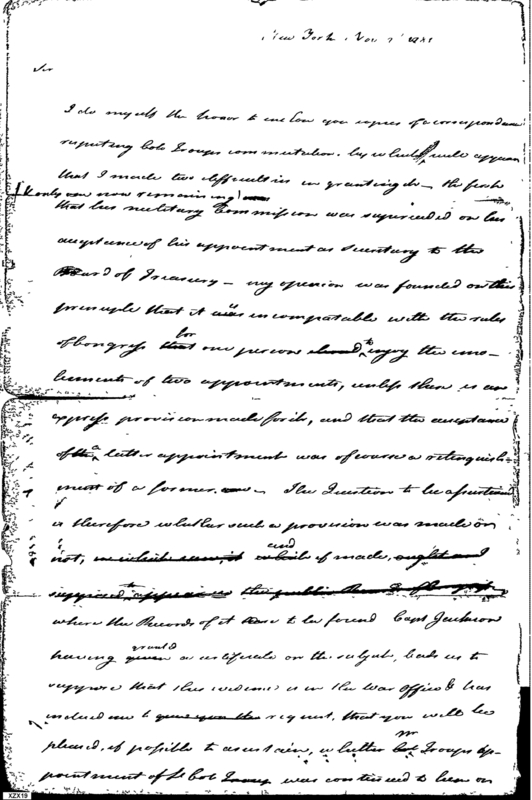 New York Nov
Sir
I do myself the honor to enclose you copies of a correspondence
respecting Col Troups commutation. by which will appear
that I made two difficulties in granting it — the first
(the only one now remaining)
that his military Commission was superceded on his
acceptance of his appointment as Secretary to the
Board of Treasury — my openion was founded on this
principle that it is incompatable with the rules
of Congress for one person to enjoy the emo-
luments of two appointments, unless there is an
express provision made for it, and that the acceptance
of a latter appointment was of course a relinquish-
ment of a former. — The Question to be ascertained
is therefore whether such a provision was made or
not, and if made,
supposed to appear in the public
where the Records of it to be found Capt Jackson
having a certificate on the subject, leads us to
suppose that this evidence is in the War Office & has
induced me to request, that you will be
pleased, if possible to ascertain, whether Mr Troups ap-
pointment of Lt Col was continued to him on
XZX19